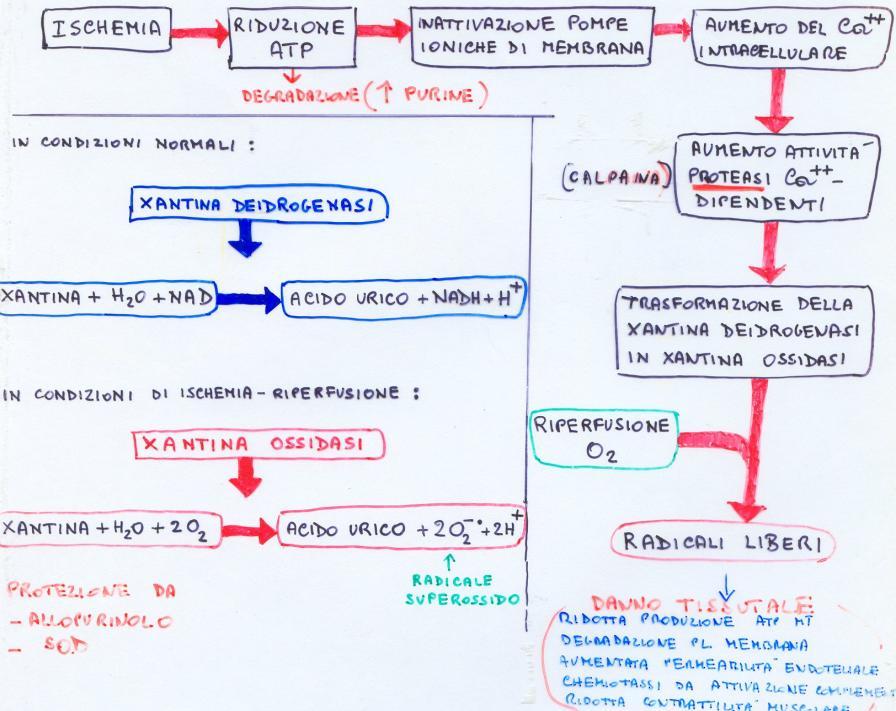 ISCHEMIA
RIDUZIONE
ATP
INATTIVAZIONE POMPE
IONICHE DI MEMBRANA
AUMENTO DEL Ca++
INTRACELLULARE
DEGRADAZIONE (↑ PURINE)
IN CONDIZIONI NORMALI :
XANTINA DEIDROGENASI
XANTINA + H2O + NAD
ACIDO URICO + NADH + H+
IN CONDIZIONI DI ISCHEMIA - RIPERFUSIONE :
XANTINA OSSIDASI
XANTINA + H2O + 2O2
ACIDO URICO + 2O2-• + 2H+
↑
RADICALE
SUPEROSSIDO
PROTEZIONE DA
- ALLOPURINOLO
- SOD
(CALPAINA)
AUMENTO ATTIVITA'
PROTEASI Ca++-
DIPENDENTI
TRASFORMAZIONE DELLA
XANTINA DEIDROGENASI
IN XANTINA OSSIDASI
RIPERFUSIONE
O2
RADICALI LIBERI
DANNO TISSUTALE
RIDOTTA PRODUZIONE ATP MT
DEGRADAZIONE PL. MEMBRANA
AUMENTATA PERMEABILITA' ENDOTELIALE
CHEMIOTASSI DA ATTIVAZIONE COMPLEME
RIDOTTA CONTRATTILITA' MUSCOLARE